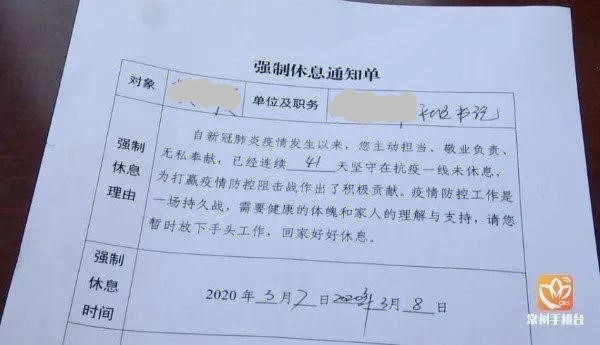 强制休息通知单
对象 单位及职务 书记
强制休息理由
自新冠肺炎疫情发生以来，您主动担当、敬业负责、
无私奉献，已经连续 41 天坚守在抗疫一线未休息，
为打赢疫情防控阻击战作出了积极贡献。疫情防控工作是
一场持久战，需要健康的体魄和家人的理解与支持，请您
暂时放下手头工作，回家好好休息。
强制休息时间
2020 年 3 月 7 日 2020年 3月 8 日
常州手机台